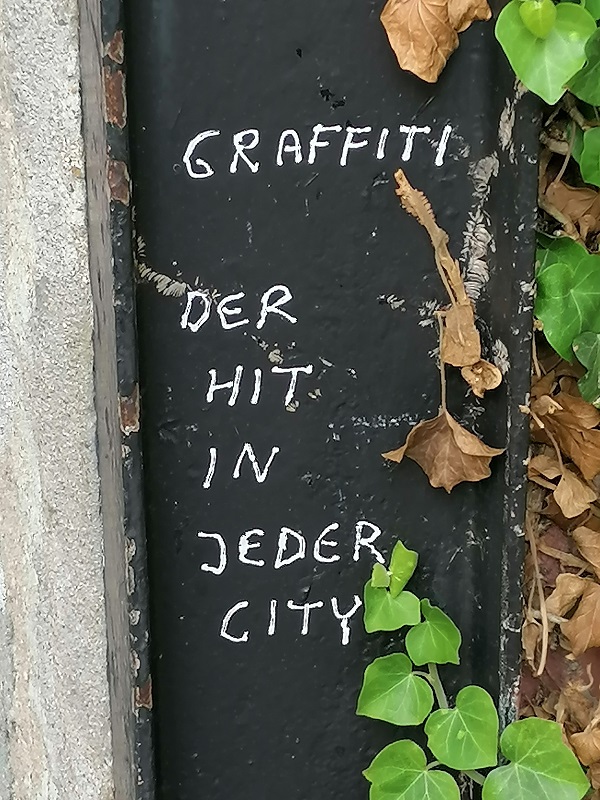 GRAFFITI
DER
HIT
IN
JEDER
CITY